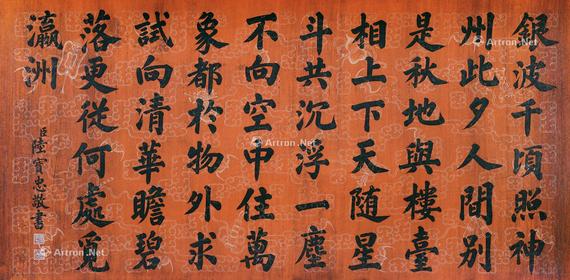 銀波千頃照神
州此夕人間別
是秋地與樓臺
相上下天随星
斗共沉浮一塵
不向空中住萬
象都於物外求
試向清華瞻碧
落更從何處覓
瀛洲
臣陸寶忠敬書
Artron.Net
Artron.Net
Artron.Net
Artron.Net
Artron.Net